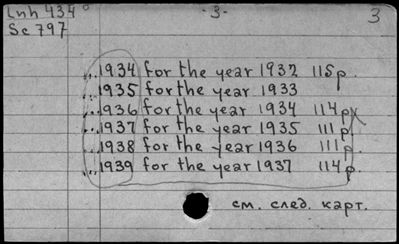 Lnh 434° -3- 3
Sc 797
...1934 for the year 1932 115p.
...1935 for the year 1933
...1936 for the year 1934 114p
...1937 for the year 1935 111p
...1938 for the year 1936 111p.
...1939 for the year 1937 114p.
см. след. карт.